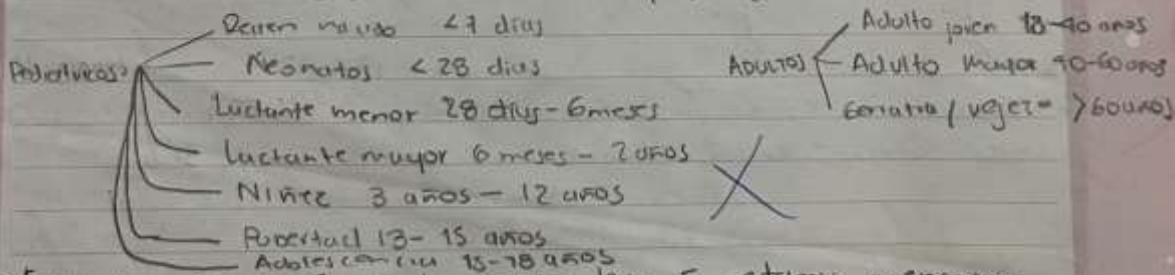 Recien nacido <7 dias
Pediatricos:
Neonatos <28 dias
Luctante menor 28 dias-6meses
Luctante mayor 6 meses - 2 años
Niñez 3 años - 12 años
Pubertad 13-15 años
Adolescencia 15-18 años
Adulto joven 18-40 años
ADULTOS
Adulto mayor 40-60 años
Geriatria / vejez= >60 años